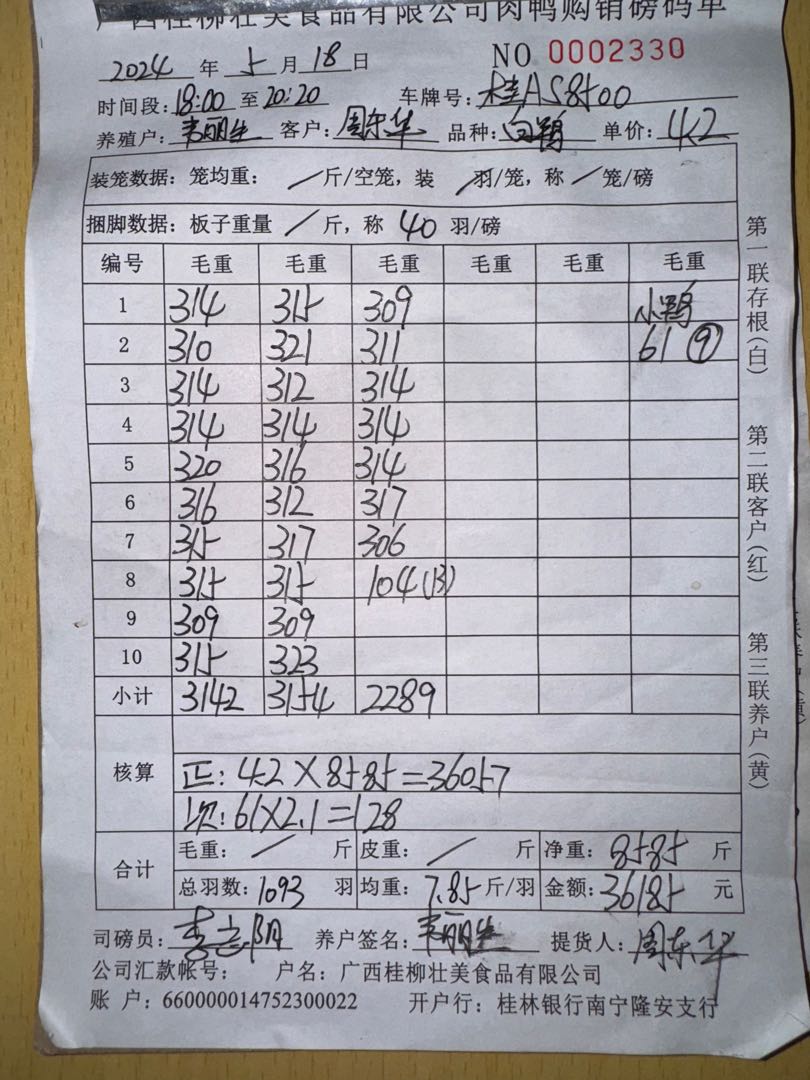 广西桂柳壮美食品有限公司肉鸭购销磅码单
2024 年 5 月 18 日 NO 0002330
时间段: 18:00 至 20:20 车牌号: 桂AS8500
养殖户: 韦丽生 客户: 周东华 品种: 白鸭 单价: 4.2
装笼数据: 笼均重: / 斤/空笼, 装 / 羽/笼, 称 / 笼/磅
捆脚数据: 板子重量 / 斤, 称 40 羽/磅
编号 毛重 毛重 毛重 毛重 毛重 毛重
1 314 315 309 小鸭
2 310 321 311 61 ⑨
3 314 312 314
4 314 314 314
5 320 316 314
6 316 312 317
7 315 317 306
8 315 315 104(13)
9 309 309
10 315 323
小计 3142 3154 2289
核算
正: 4.2×8585=36057
次: 61×2.1=128
合计
毛重: / 斤 皮重: / 斤 净重: 8585 斤
总羽数: 1093 羽 均重: 7.85 斤/羽 金额: 36185 元
司磅员: 李志阴 养户签名: 韦丽生 提货人: 周东华
公司汇款帐号: 户名: 广西桂柳壮美食品有限公司
账 户: 660000014752300022 开户行: 桂林银行南宁隆安支行
第一联存根(白)
第二联客户(红)
第三联养户(黄)